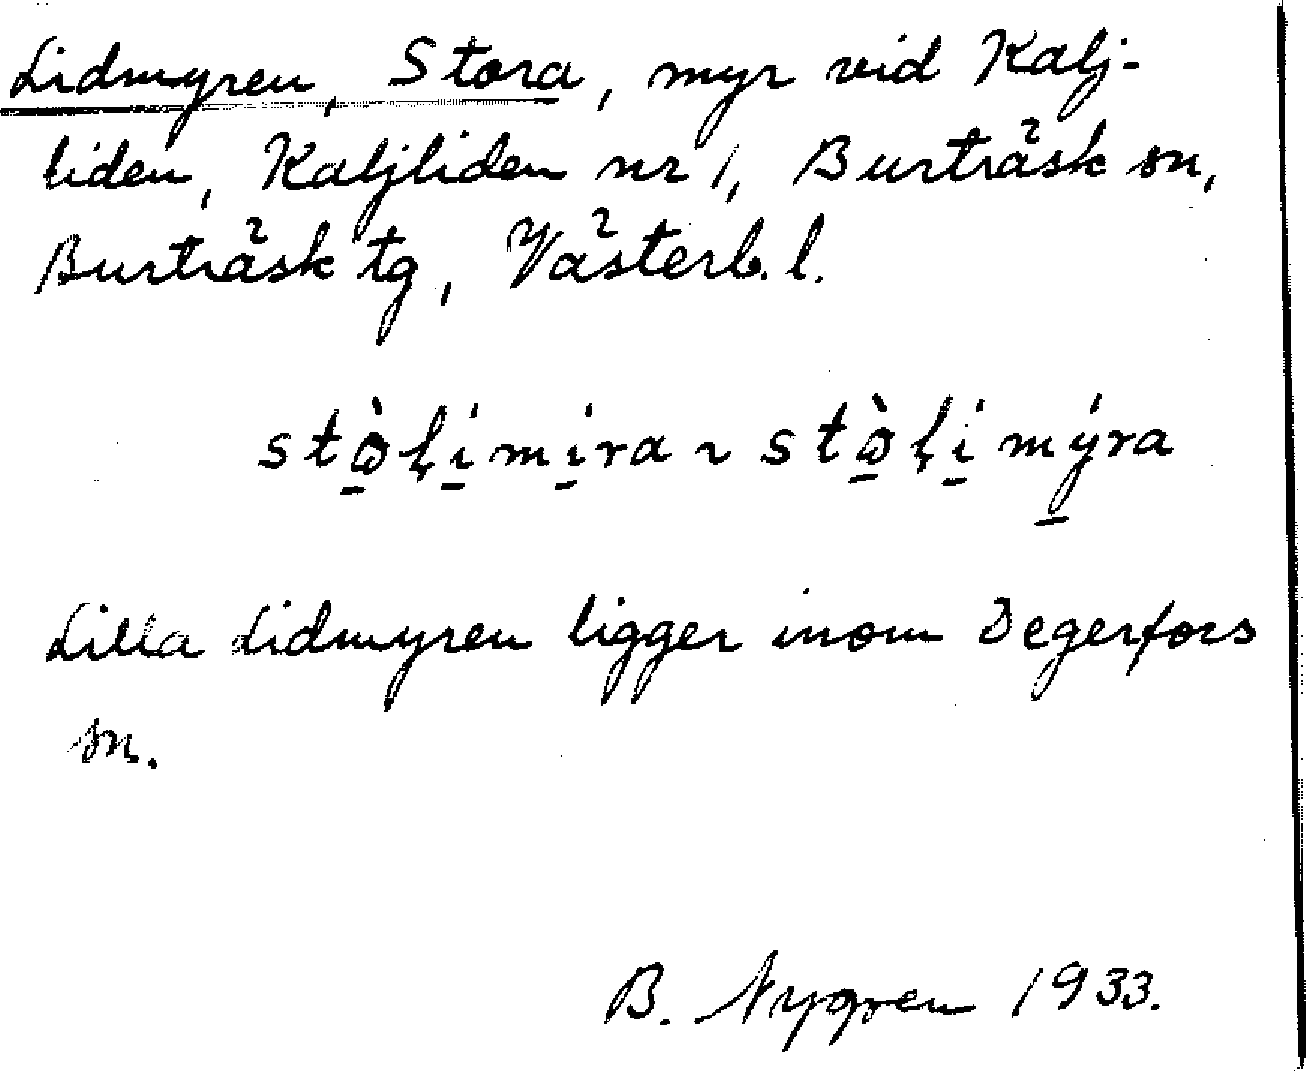 Lidmyren, Stora, myr vid Kalj-
liden, Kaljliden nr 1, Burträsk sn,
Burträsk tg, Västerb. l.
stò̠ḷi̠mi̠ra ~ stò̠ḷi̠mý̠ra
Lilla Lidmyren ligger inom Degerfors
sn.
B. Nygren 1933.